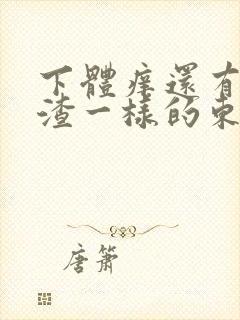 下體痒還有
渣一樣的東
唐簫